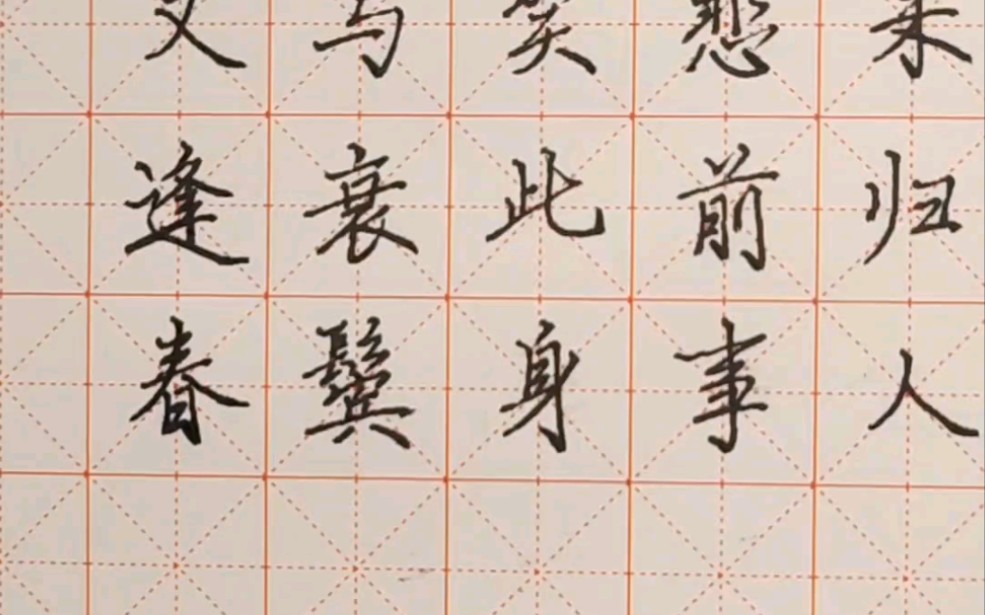 未归人
悲前事
笑此身
与衰鬓
又逢春